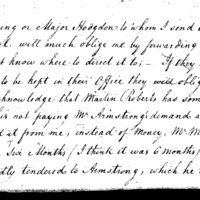 ing or Major Hodgdon to whom I send a
t. will much oblige me by forwarding
t know where to direct it; - If they
to be kept in their Office they will oblig
knowledge that Martin Roberts has som
his not paying Mr Armstrong's demand a
d it from me, instead of Money, Mr M
Six Months / I think it was 6 months /
dly tendered to Armstrong, which he